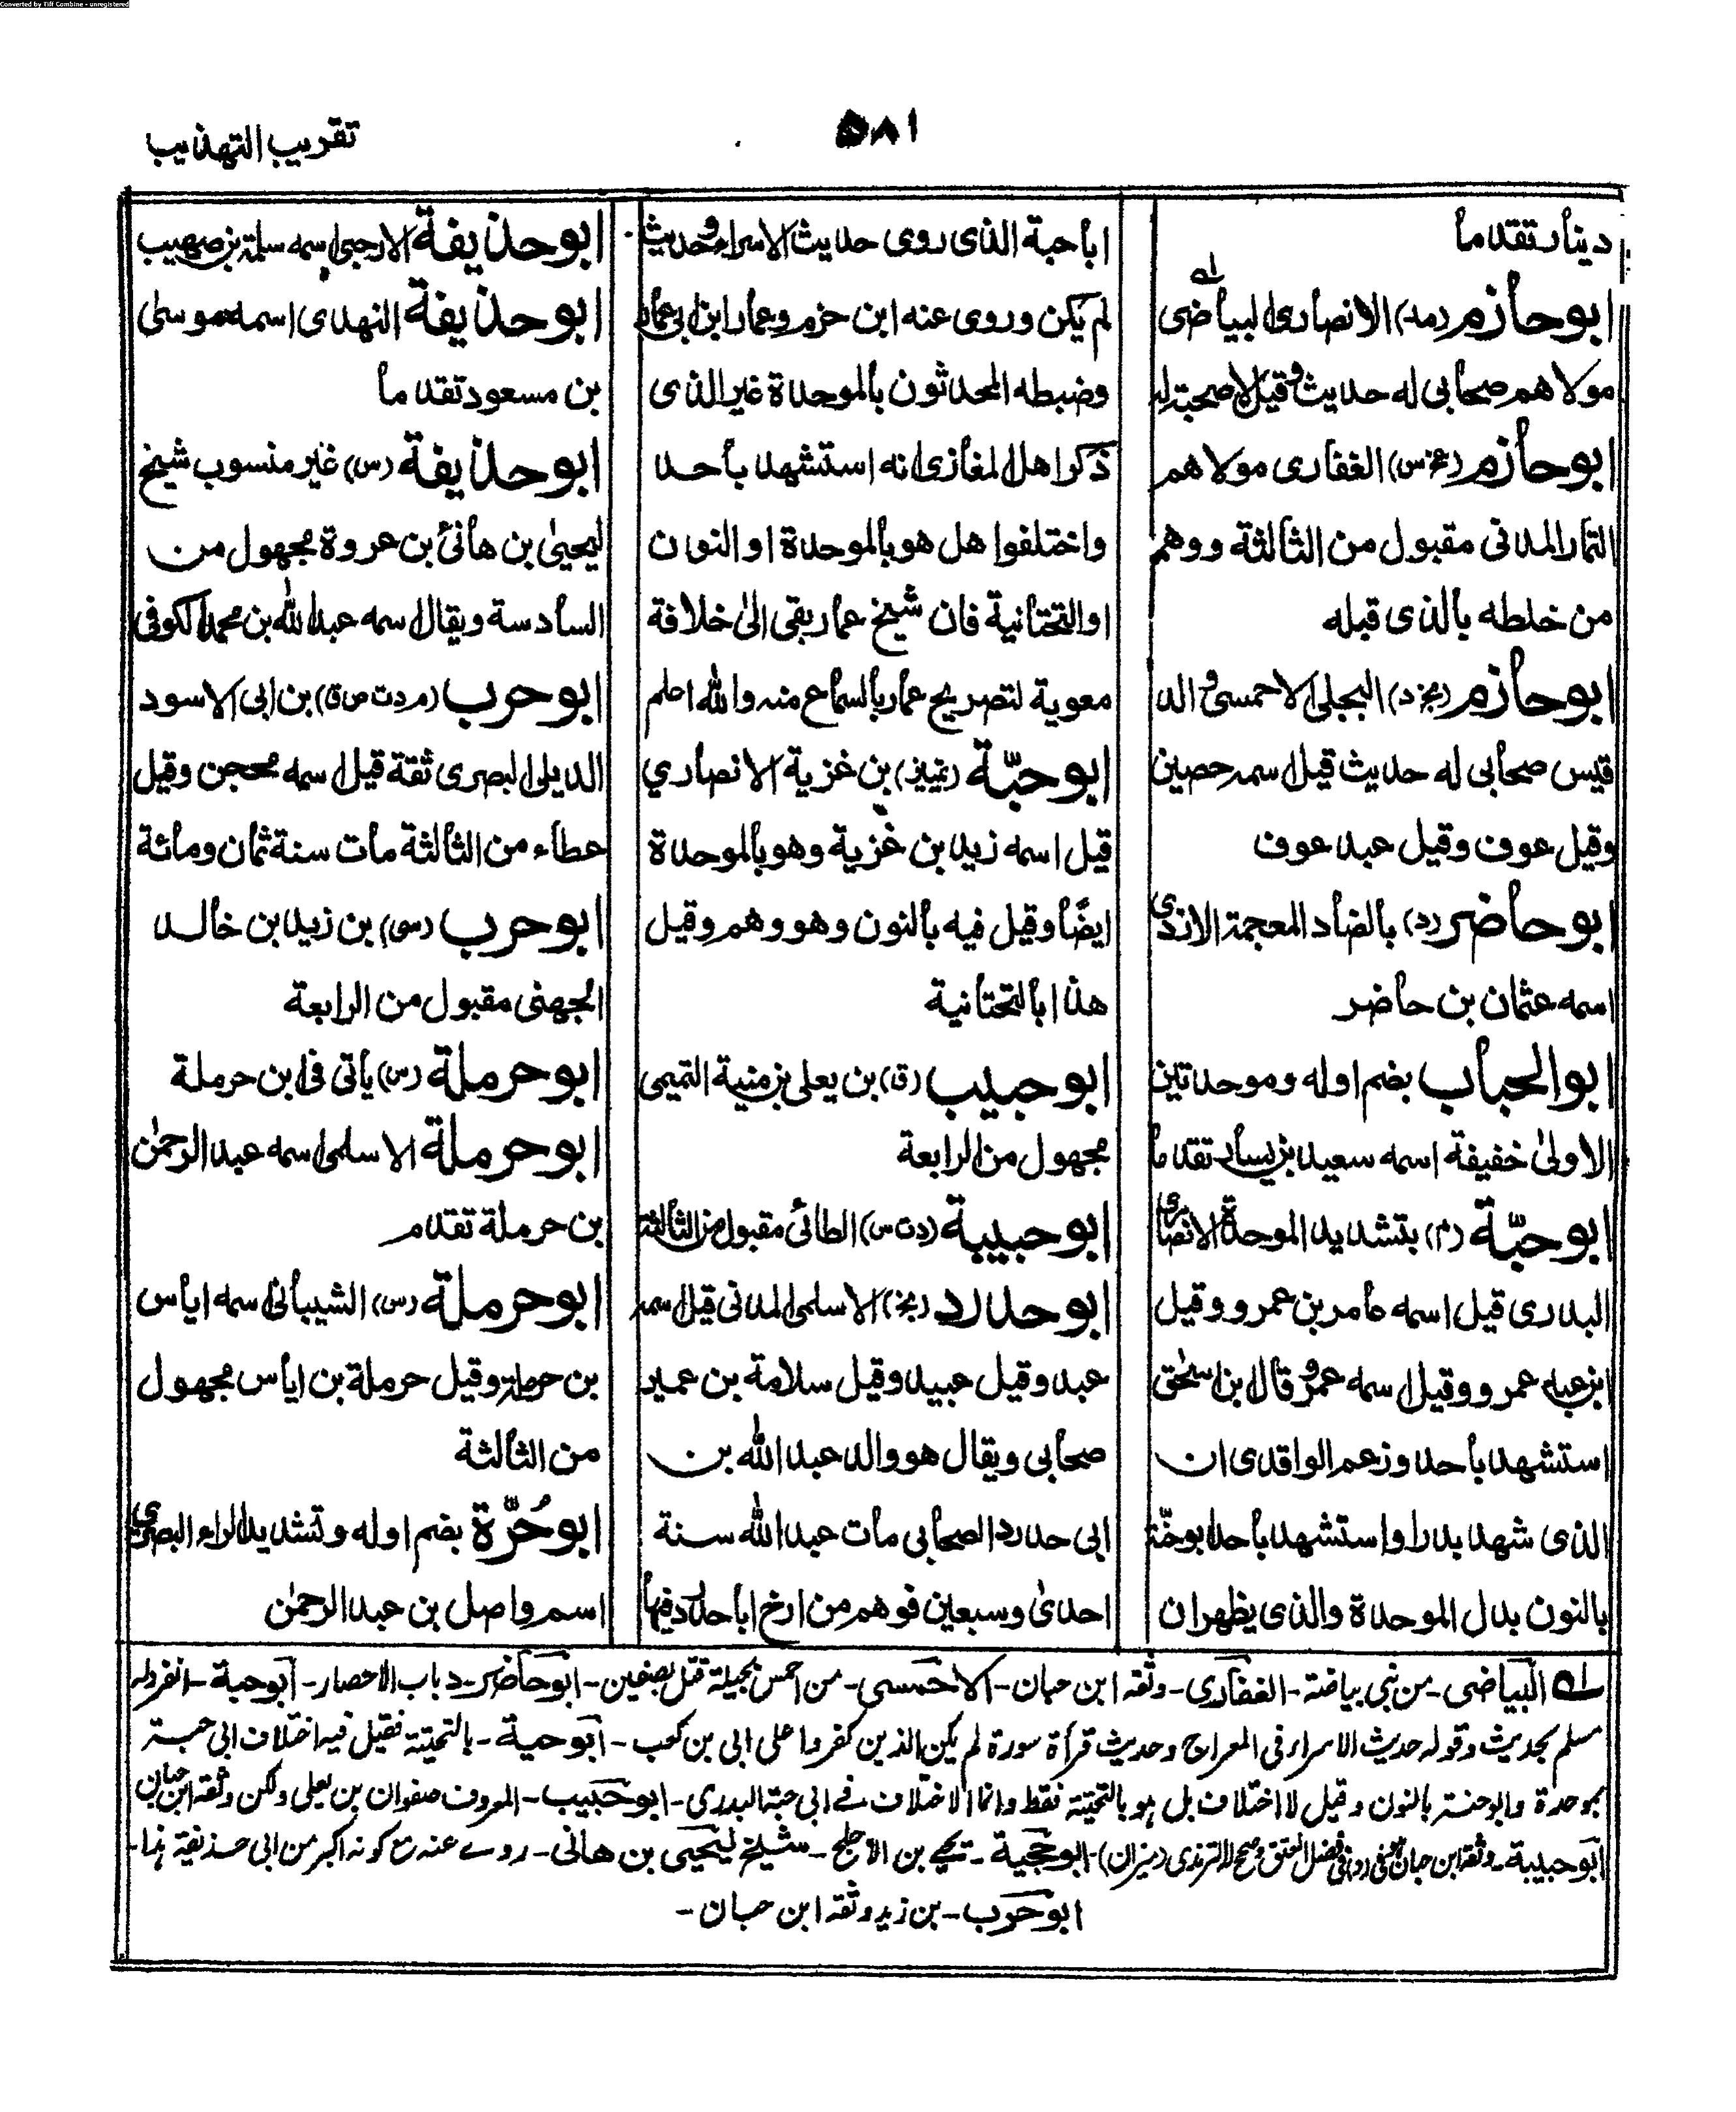 Converted by Tiff Combine - unregistered
تقريب التهذيب
٥٨١
دينار تقدما
ابو حازم (مد) الانصارى البياضى
مولاهم صحابى له حديث وقيل لا صحبة له
ابو حازم (عخ س) الغفارى مولاهم
التمار المدنى مقبول من الثالثة ووهم
من خلطه بالذى قبله
ابو حازم (بخ د) البجلى الاحمسى والد
قيس صحابى له حديث قيل اسمه حصين
وقيل عوف وقيل عبد عوف
ابو حاضر (د) بالضاد المعجمة الازدى
اسمه عثمان بن حاضر
ابو الحباب بضم اوله وموحدتين
الاولى خفيفة اسمه سعيد بن يسار تقدما
ابو حبّة (م) بتشديد الموحدة الانصارى
البدرى قيل اسمه عامر بن عمرو وقيل
ابن عبد عمرو وقيل اسمه عمرو قال بن اسحٰق
استشهد باحد وزعم الواقدى ان
الذى شهد بدرا واستشهد باحد ابو حنّة
بالنون بدل الموحدة والذى يظهر ان
ابا حبة الذى روى حديث الاسراء وحديث
لم يكن وروى عنه ابن حزم وعمار ابن ابى عمار
وضبطه المحدثون بالموحدة غير الذى
ذكر اهل المغازى انه استشهد باحد
واختلفوا هل هو بالموحدة او النون
او التحتانية فان شيخ عمار بقى الى خلافة
معوية لتصريح عمار بالسماع منه والله اعلم
ابو حبّة (تمييز) بن غزية الانصاري
قيل اسمه زيد بن غزية وهو بالموحدة
ايضًا وقيل فيه بالنون وهو وهم وقيل
هذا بالتحتانية
ابو حبيب (ق) بن يعلى بن منية التميمى
مجهول من الرابعة
ابو حبيبة (د ت س) الطائى مقبول من الثالثة
ابو حدرد (بخ) الاسلمى المدنى قيل اسمه
عبد وقيل عبيد وقيل سلامة بن عمير
صحابى ويقال هو والد عبد الله بن
ابى حدرد الصحابى مات عبد الله سنة
احدىٰ وسبعين فوهم من ارخ ابا حدرد فيها
ابو حذيفة الارحبى اسمه سلمة بن صهيب
ابو حذيفة النهدى اسمه موسىٰ
بن مسعود تقدما
ابو حذيفة (س) غير منسوب شيخ
ليحيىٰ بن هانئ بن عروة مجهول من
السادسة ويقال اسمه عبد الله بن محمد الكوفى
ابو حرب (م د ت ص ق) بن ابى الاسود
الديلى البصرى ثقة قيل اسمه محجن وقيل
عطاء من الثالثة مات سنة ثمان ومائة
ابو حرب (سى) بن زيد بن خالد
الجهنى مقبول من الرابعة
ابو حرملة (س) ياتى فى ابن حرملة
ابو حرملة الاسلمى اسمه عبد الرحمٰن
بن حرملة تقدم
ابو حرملة (س) الشيبانى اسمه اياس
بن حرملة وقيل حرملة بن اياس مجهول
من الثالثة
ابو حُرّة بضم اوله وتشديد الراء البصرى
اسمه واصل بن عبد الرحمٰن
له البياضى - من بني بياضة - الغفارى - وثقه ابن حبان - الاحمسى - من احمس بجيلة قتل بصفين - ابو حاضر - د باب الاحصار - ابو حبة - انفرد له
مسلم بحديث وقوله حديث الاسراء فى المعراج وحديث قرأة سورة لم يكن الذين كفروا على ابى بن كعب - ابو حية - بالتحتية فقيل فيه اختلاف ابى حبة
بموحدة وابو حنة بالنون وقيل لا اختلاف بل هو بالتحتية فقط وانما الاختلاف فى ابى حبة البدرى - ابو حبيب - المعروف صفوان بن يعلى ولكن وثقه ابن حبان
ابو حبيبة - وثقه ابن حبان فى فضل العتق وصححه الترمذى (ميزان) - ابو حجية - يحيى بن الاجلح - شيخ ليحيى بن هانى - روى عنه مع كونه اكبر من ابى حذيفة هذا -
ابو حرب - بن زيد وثقه ابن حبان -